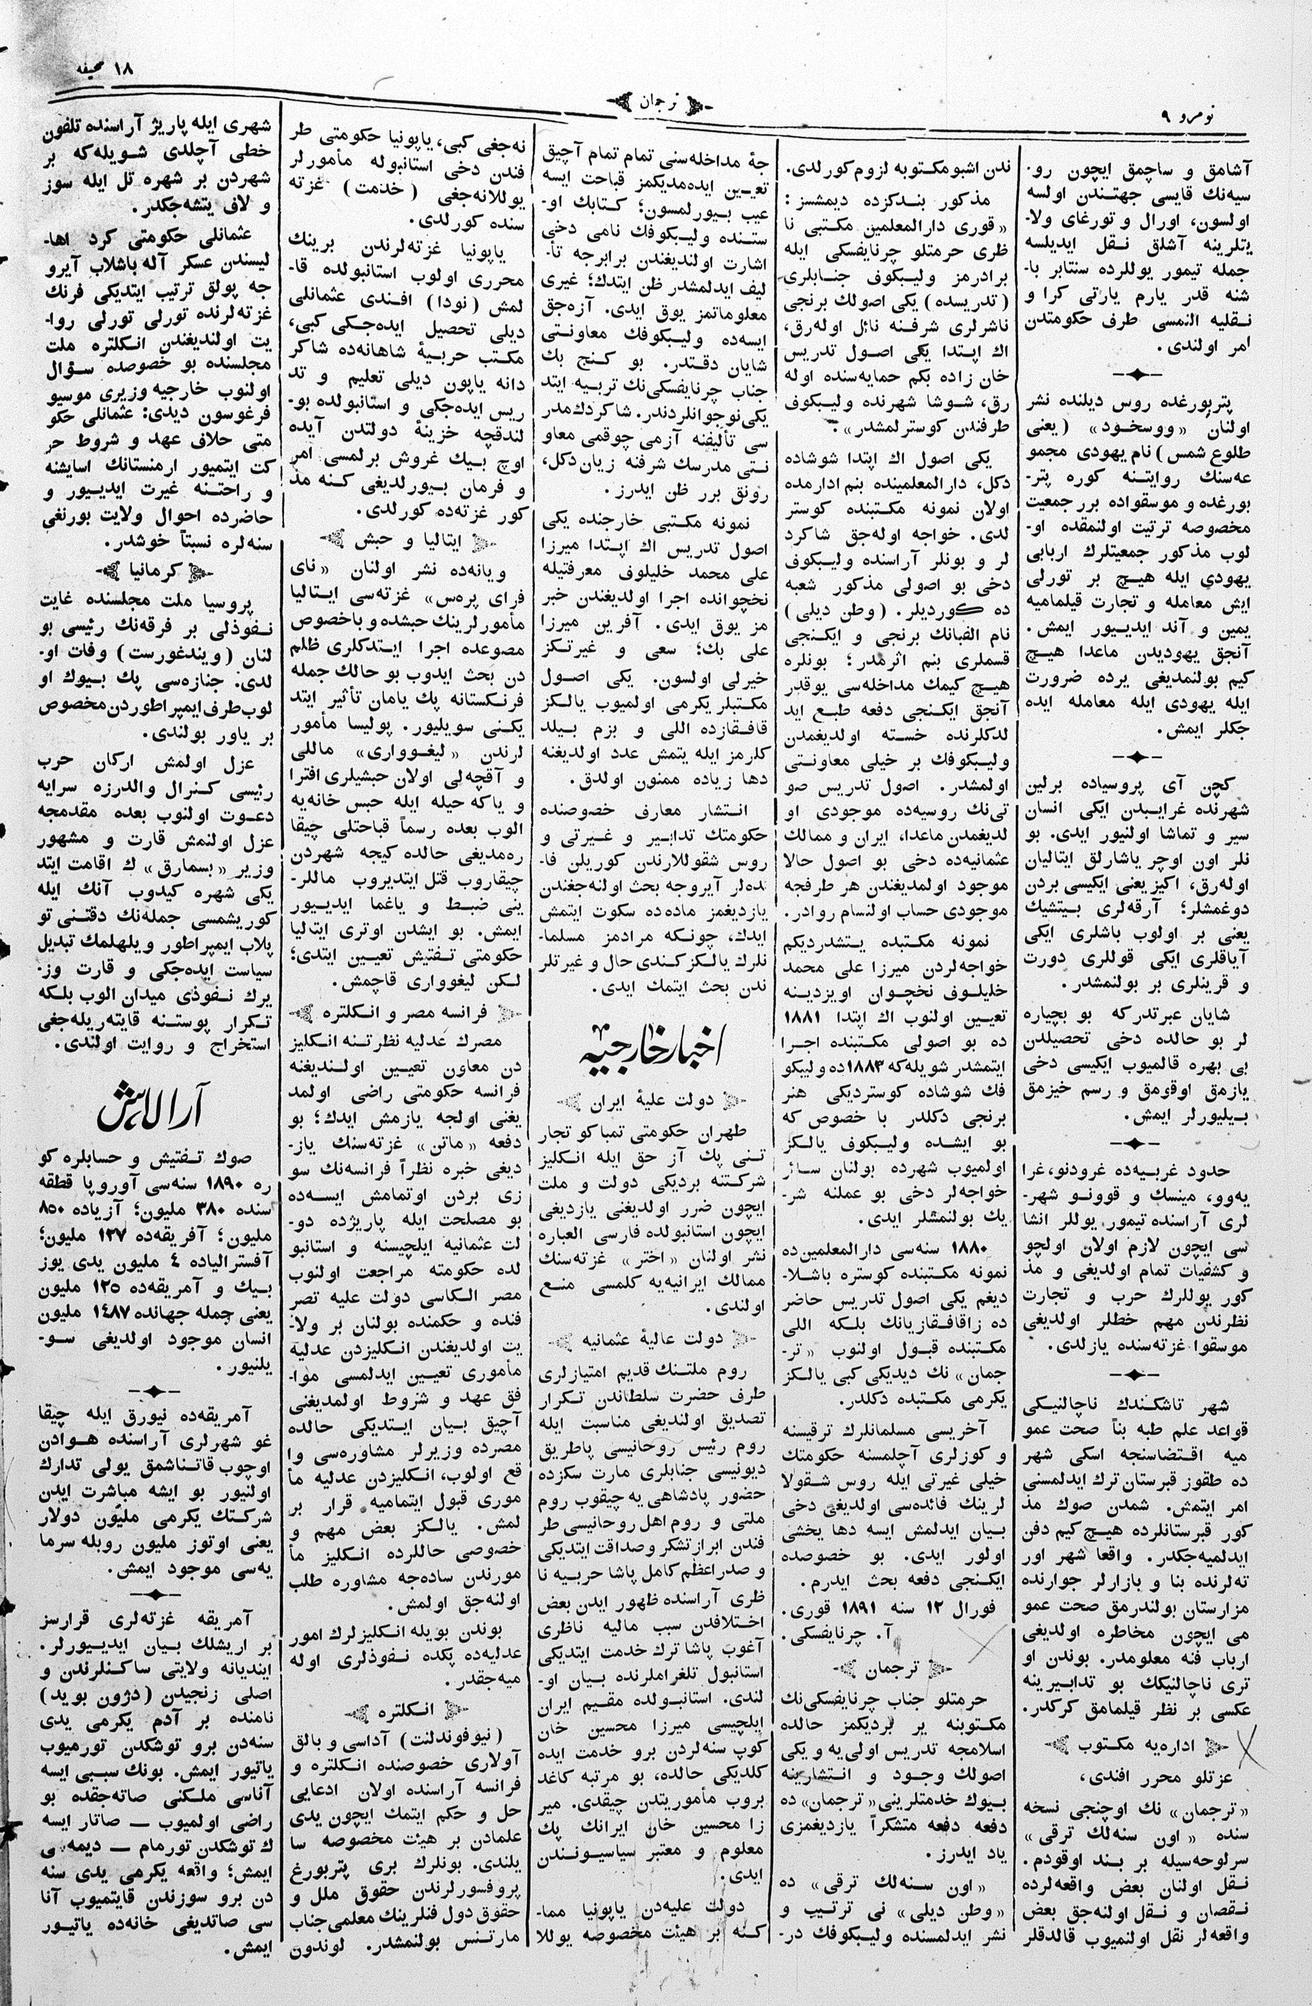 نومرو ٩
ترجمان
١٨ صحیفه
آشامق و ساچمق ایچون رو-
سیه‌نك قایسی جهتندن اولسه
اولسون، اورال و تورغای ولا-
یتلرینه آشلق نقل ایدیلسه
جمله تیمور یوللرده سنتابر با-
شنه قدر یارم یارتی کرا و
نقلیه النمسی طرف حکومتدن
امر اولندی.
پتربورغده روس دیلنده نشر
اولنان «ووسخود» (یعنی
طلوع شمس) نام یهودی مجمو
عه‌سنك روایتنه کوره پتر-
بورغده و موسقواده برر جمعیت
مخصوصه ترتیت اولنمقده او-
لوب مذکور جمعیتلرك اربابی
یهودی ایله هیچ بر تورلی
ایش معامله و تجارت قیلمامیه
یمین و آند ایدییور ایمش.
آنجق یهودیدن ماعدا هیچ
کیم بولنمدیغی یرده ضرورت
ایله یهودی ایله معامله ایده
جکلر ایمش.
کچن آی پروسیاده برلین
شهرنده غرایبدن ایکی انسان
سیر و تماشا اولنیور ایدی. بو
نلر اون اوچر یاشارلق ایتالیان
اوله‌رق، اکیز یعنی ایکیسی بردن
دوغمشلر؛ آرقه‌لری بیتشیك
یعنی بر اولوب باشلری ایکی
آیاقلری ایکی قوللری دورت
و قرینلری بر بولنمشدر.
شایان عبرتدرکه بو بچیاره
لر بو حالده دخی تحصیلدن
بی بهره قالمیوب ایکیسی دخی
یازمق اوقومق و رسم خیزمق
بیلیورلر ایمش.
حدود غربیه‌ده غرودنو، غرا
یه‌وو، مینسك و قوونو شهر-
لری آراسنده تیمور یوللر انشا
سی ایچون لازم اولان اولچو
و کشفیات تمام اولدیغی و مذ
کور یوللرك حرب و تجارت
نظرندن مهم خطلر اولدیغی
موسقوا غزته‌سنده یازلدی.
شهر تاشکندك ناچالنیکی
قواعد علم طبه بناً صحت عمو
میه اقتضاسنجه اسکی شهر
ده طقوز قبرستان ترك ایدلمسنی
امر ایتمش. شمدن صوك مذ
کور قبرستانلرده هیچ کیم دفن
ایدلمیه‌جکدر. واقعا شهر اور
ته‌لرنده بنا و بازارلر جوارنده
مزارستان بولندرمق صحت عمو
می ایچون مخاطره اولدیغی
ارباب فنه معلومدر. بوندن او
تری ناچالنیکك بو تدابیرینه
عکسی بر نظر قیلمامق کرکدر.
اداره‌یه مکتوب
عزتلو محرر افندی،
«ترجمان» نك اوچنجی نسخه
سنده «اون سنه‌لك ترقی»
سرلوحه‌سیله بر بند اوقودم.
نقل اولنان بعض واقعه‌لرده
نقصان و نقل اولنه‌جق بعض
واقعه‌لر نقل اولنمیوب قالدقلر
ندن اشبو مکتوبه لزوم کورلدی.
مذکور بندکزده دیمشسز:
«قوری دارالمعلمین مکتبی نا
ظری حرمتلو چرنایفسکی ایله
برادرمز ولیبکوف جنابلری
(تدریسده) یکی اصولك برنجی
ناشرلری شرفنه نائل اوله‌رق،
اك اپتدا یکی اصول تدریس
خان زاده بکم حمایه‌سنده اوله
رق، شوشا شهرنده ولیبکوف
طرفندن کوسترلمشدر».
یکی اصول اك اپتدا شوشاده
دکل، دارالمعلمینده بنم ادارمده
اولان نمونه مکتبنده کوستر
لدی. خواجه اوله‌جق شاکرد
لر و بونلر آراسنده ولیبکوف
دخی بو اصولی مذکور شعبه
ده کوردیلر. (وطن دیلی)
نام الفبانك برنجی و ایکنجی
قسملری بنم اثرمدر؛ بونلره
هیچ کیمك مداخله‌سی یوقدر
آنجق ایکنجی دفعه طبع اید
لدکلرنده خسته اولدیغمدن
ولیبکوفك بر خیلی معاونتی
اولمشدر. اصول تدریس صو
تی‌نك روسیه‌ده موجودی او
لدیغمدن ماعدا، ایران و ممالك
عثمانیه‌ده دخی بو اصول حالا
موجود اولمدیغندن هر طرفجه
موجودی حساب اولنسام روادر.
نمونه مکتبده یتشدردیکم
خواجه‌لردن میرزا علی محمد
خلیلوف نخچوان اویزدینه
تعیین اولنوب اك اپتدا ١٨٨١
ده بو اصولی مکتبنده اجرا
ایتمشدر شویله‌که ١٨٨٣ ده ولیبکو
فك شوشاده کوستردیکی هنر
برنجی دکلدر با خصوص که
بو ایشده ولیبکوف یالکز
اولمیوب شهرده بولنان سائر
خواجه‌لر دخی بو عملنه شر-
یك بولنمشلر ایدی.
١٨٨٠ سنه‌سی دارالمعلمین‌ده
نمونه مکتبنده کوستره باشلا-
دیغم یکی اصول تدریس حاضر
ده زاقافقازیانك بلکه اللی
مکتبنده قبول اولنوب «تر-
جمان» نك دیدیکی کبی یالکز
یکرمی مکتبده دکلدر.
آخریسی مسلمانلرك ترقیسنه
و کوزلری آچلمسنه حکومتك
خیلی غیرتی ایله روس شقولا
لرینك فائده‌سی اولدیغی دخی
بیان ایدلمش ایسه دها یخشی
اولور ایدی. بو خصوصده
ایکنجی دفعه بحث ایدرم.
فورال ١٢ سنه ١٨٩١ قوری.
آ. چرنایفسکی.
ترجمان
حرمتلو جناب چرنایفسکی‌نك
مکتوبنه یر بردیکمز حالده
اسلامجه تدریس اولی‌یه و یکی
اصولك وجود و انتشارینه
بیوك خدمتلرینی «ترجمان» ده
دفعه دفعه متشکراً یازدیغمزی
یاد ایدرز.
«اون سنه‌لك ترقی» ده
«وطن دیلی» نی ترتیب و
نشر ایدلمسنده ولیبکوفك در-
جهٔ مداخله‌سنی تمام تمام آچیق
تعیین ایده‌مدیکمز قباحت ایسه
عیب بیورلمسون؛ کتابك او-
ستنده ولیبکوفك نامی دخی
اشارت اولندیغندن برابرجه تأ-
لیف ایدلمشدر ظن ایتدك؛ غیری
معلوماتمز یوق ایدی. آزه‌جق
ایسه‌ده ولیبکوفك معاونتی
شایان دقتدر. بو کنج بك
جناب چرنایفسکی‌نك تربیه ایتد
یکی نوجوانلردندر. شاکردك مدر
سی تألیفنه آزمی چوقمی معاو
نتی مدرسك شرفنه زیان دکل،
رونق برر ظن ایدرز.
نمونه مکتبی خارجنده یکی
اصول تدریس اك اپتدا میرزا
علی محمد خلیلوف معرفتیله
نخچوانده اجرا اولدیغندن خبر
مز یوق ایدی. آفرین میرزا
علی بك؛ سعی و غیرتکز
خیرلی اولسون. یکی اصول
مکتبلر یکرمی اولمیوب یالکز
قافقازده اللی و بزم بیلد
کلرمز ایله یتمش عدد اولدیغنه
دها زیاده ممنون اولدق.
انتشار معارف خصوصنده
حکومتك تدابیر و غیرتی و
روس شقوللارندن کوریلن فا-
ئده‌لر آیروجه بحث اولنه‌جغندن
یازدیغمز ماده‌ده سکوت ایتمش
ایدك، چونکه مرادمز مسلما-
نلرك یالکز کندی حال و غیرتلر
ندن بحث ایتمك ایدی.
اخبار خارجیه
دولت علیهٔ ایران
طهران حکومتی تمباکو تجار
تنی پك آز حق ایله انکلیز
شرکتنه بردیکی دولت و ملت
ایچون ضرر اولدیغنی یازدیغی
ایچون استانبولده فارسی العباره
نشر اولنان «اختر» غزته‌سنك
ممالك ایرانیه‌یه کلمسی منع
اولندی.
دولت عالیهٔ عثمانیه
روم ملتنك قدیم امتیازلری
طرف حضرت سلطاندن تکرار
تصدیق اولندیغی مناسبت ایله
روم رئیس روحانیسی پاطریق
دیونیسی جنابلری مارت سکزده
حضور پادشاهی یه چیقوب روم
ملتی و روم اهل روحانیسی طر
فندن ابراز تشکر و صداقت ایتدیکی
و صدراعظم کامل پاشا حربیه نا
ظری آراسنده ظهور ایدن بعض
اختلافدن سبب مالیه ناظری
آغوب پاشا ترك خدمت ایتدیکی
استانبول تلغراملرنده بیان او-
لندی. استانبولده مقیم ایران
ایلچیسی میرزا محسین خان
کوپ سنه‌لردن برو خدمت ایده
کلدیکی حالده، بو مرتبه کاغد
بروب مأموریتدن چیقدی. میر
زا محسین خان ایرانك پك
معلوم و معتبر سیاسیونندن
ایدی.
دولت علیه‌دن یاپونیا مما-
کنه بر هیئت مخصوصه یوللا
نه‌جغی کبی، یاپونیا حکومتی طر
فندن دخی استانبوله مأمورلر
یوللانه‌جغی (خدمت) غزته
سنده کورلدی.
یاپونیا غزته‌لرندن برینك
محرری اولوب استانبولده قا-
لمش (نودا) افندی عثمانلی
دیلی تحصیل ایده‌جکی کبی،
مکتب حربیهٔ شاهانه‌ده شاکر
دانه یاپون دیلی تعلیم و تد
ریس ایده‌جکی و استانبولده بو-
لندقچه خزینهٔ دولتدن آیده
اوچ بیك غروش برلمسی امر
و فرمان بیورلدیغی کنه مذ
کور غزته‌ده کورلدی.
ایتالیا و حبش
ویانه‌ده نشر اولنان «نای
فرای پره‌س» غزته‌سی ایتالیا
مأمورلرینك حبشده و باخصوص
مصوعده اجرا ایتدکلری ظلم
دن بحث ایدوب بو حالك جمله
فرنکستانه پك یامان تأثیر ایتد
یکنی سویلیور. پولیسا مأمور
لرندن «لیغوواری» ماللی
و آقچه‌لی اولان حبشیلری افترا
و یاکه حیله ایله حبس خانه‌یه
الوب بعده رسماً قباحتلی چیقا
ره‌مدیغی حالده کیجه شهردن
چیقاروب قتل ایتدیروب ماللر-
ینی ضبط و یاغما ایدییور
ایمش. بو ایشدن اوتری ایتالیا
حکومتی تفتیش تعیین ایتدی؛
لکن لیغوواری قاچمش.
فرانسه مصر و انکلتره
مصرك عدلیه نظرتنه انکلیز
دن معاون تعیین اولندیغنه
فرانسه حکومتی راضی اولمد
یغنی اولجه یازمش ایدك؛ بو
دفعه «ماتن» غزته‌سنك یاز-
دیغی خبره نظراً فرانسه‌نك سو
زی بردن اوتمامش ایسه‌ده
بو مصلحت ایله پاریژده دو-
لت عثمانیه ایلچیسنه و استانبو
لده حکومته مراجعت اولنوب
مصر الکاسی دولت علیه تصر
فنده و حکمنده بولنان بر ولا-
یت اولدیغندن انکلیزدن عدلیه
مأموری تعیین ایدلمسی موا-
فق عهد و شروط اولمدیغنی
آچیق بیان ایتدیکی حالده
مصرده وزیرلر مشاوره‌سی وا
قع اولوب، انکلیزدن عدلیه مأ
موری قبول ایتمامیه قرار بر
لمش. یالکز بعض مهم و
خصوصی حاللرده انکلیز مأ
مورندن ساده‌جه مشاوره طلب
اولنه‌جق اولمش.
بوندن بویله انکلیزلرك امور
عدلیه‌ده پکده نفوذلری اوله
میه‌جقدر.
انکلتره
(نیوفوندلنت) آداسی و بالق
آولاری خصوصنده انکلتره و
فرانسه آراسنده اولان ادعایی
حل و حکم ایتمك ایچون یدی
علمادن بر هیئت مخصوصه سا
یلندی. بونلرك بری پتربورغ
پروفسورلرندن حقوق ملل و
حقوق دول فنلرینك معلمی جناب
مارتنس بولنمشدر. لوندون
شهری ایله پاریژ آراسنده تلفون
خطی آچلدی شویله‌که بر
شهردن بر شهره تل ایله سوز
و لاف یتشه‌جکدر.
عثمانلی حکومتی کرد اها-
لیسندن عسکر آله باشلاب آیرو
جه پولق ترتیب ایتدیکی فرنك
غزته‌لرنده تورلی تورلی روا-
یت اولندیغندن انکلتره ملت
مجلسنده بو خصوصده سؤال
اولنوب خارجیه وزیری موسیو
فرغوسون دیدی: عثمانلی حکو
متی خلاف عهد و شروط حر
کت ایتمیور ارمنستانك اسایشنه
و راحتنه غیرت ایدییور و
حاضرده احوال ولایت بورنغی
سنه‌لره نسبتاً خوشدر.
کرمانیا
پروسیا ملت مجلسنده غایت
نفوذلی بر فرقه‌نك رئیسی بو
لنان (ویندغورست) وفات او-
لدی. جنازه‌سی پك بیوك او
لوب طرف ایمپراطوردن مخصوص
بر یاور بولندی.
عزل اولمش ارکان حرب
رئیسی کنرال والدرزه سرایه
دعوت اولنوب بعده مقدمجه
عزل اولنمش قارت و مشهور
وزیر «بسمارق» ك اقامت ایتد
یکی شهره کیدوب آنك ایله
کوریشمسی جمله‌نك دقتنی تو
پلاب ایمپراطور ویلهلمك تبدیل
سیاست ایده‌جکی و قارت وز-
یرك نفوذی میدان الوب بلکه
تکرار پوستنه قایته‌ریله‌جغی
استخراج و روایت اولندی.
آرالاش
صوك تفتیش و حسابلره کو
ره ١٨٩٠ سنه‌سی آوروپا قطقه
سنده ٣٨٠ ملیون؛ آزیاده ٨٥٠
ملیون؛ آفریقه‌ده ١٢٧ ملیون؛
آفسترالیاده ٤ ملیون یدی یوز
بیك و آمریقه‌ده ١٢٥ ملیون
یعنی جمله جهانده ١٤٨٧ ملیون
انسان موجود اولدیغی سو-
یلنیور.
آمریقه‌ده نیورق ایله چیقا
غو شهرلری آراسنده هوادن
اوچوب قاتناشمق یولی تدارك
اولنیور بو ایشه مباشرت ایدن
شرکتك یکرمی ملیون دولار
یعنی اوتوز ملیون روبله سرما
یه‌سی موجود ایمش.
آمریقه غزته‌لری قرارسز
بر اریشلك بیان ایدییورلر.
ایندیانه ولایتی ساکنلرندن و
اصلی زنجیدن (دژون بوید)
نامنده بر آدم یکرمی یدی
سنه‌دن برو توشکدن تورمیوب
یاتیور ایمش. بونك سببی ایسه
آناسی ملکنی صاته‌جقده بو
راضی اولمیوب — صاتار ایسه
ك توشکدن تورمام — دیمه‌سی
ایمش؛ واقعه یکرمی یدی سنه
دن برو سوزندن قایتمیوب آنا
سی صاتدیغی خانه‌ده یاتیور
ایمش.